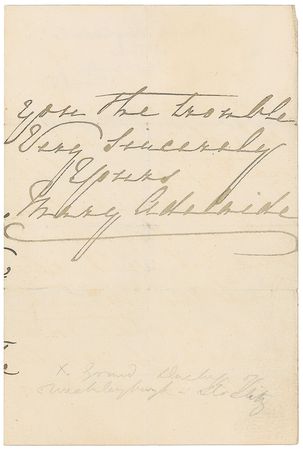 you the trouble
Very Sincerely
Yours
Mary Adelaide
x. Grand Duchess of
Mecklenburgh - Strelitz